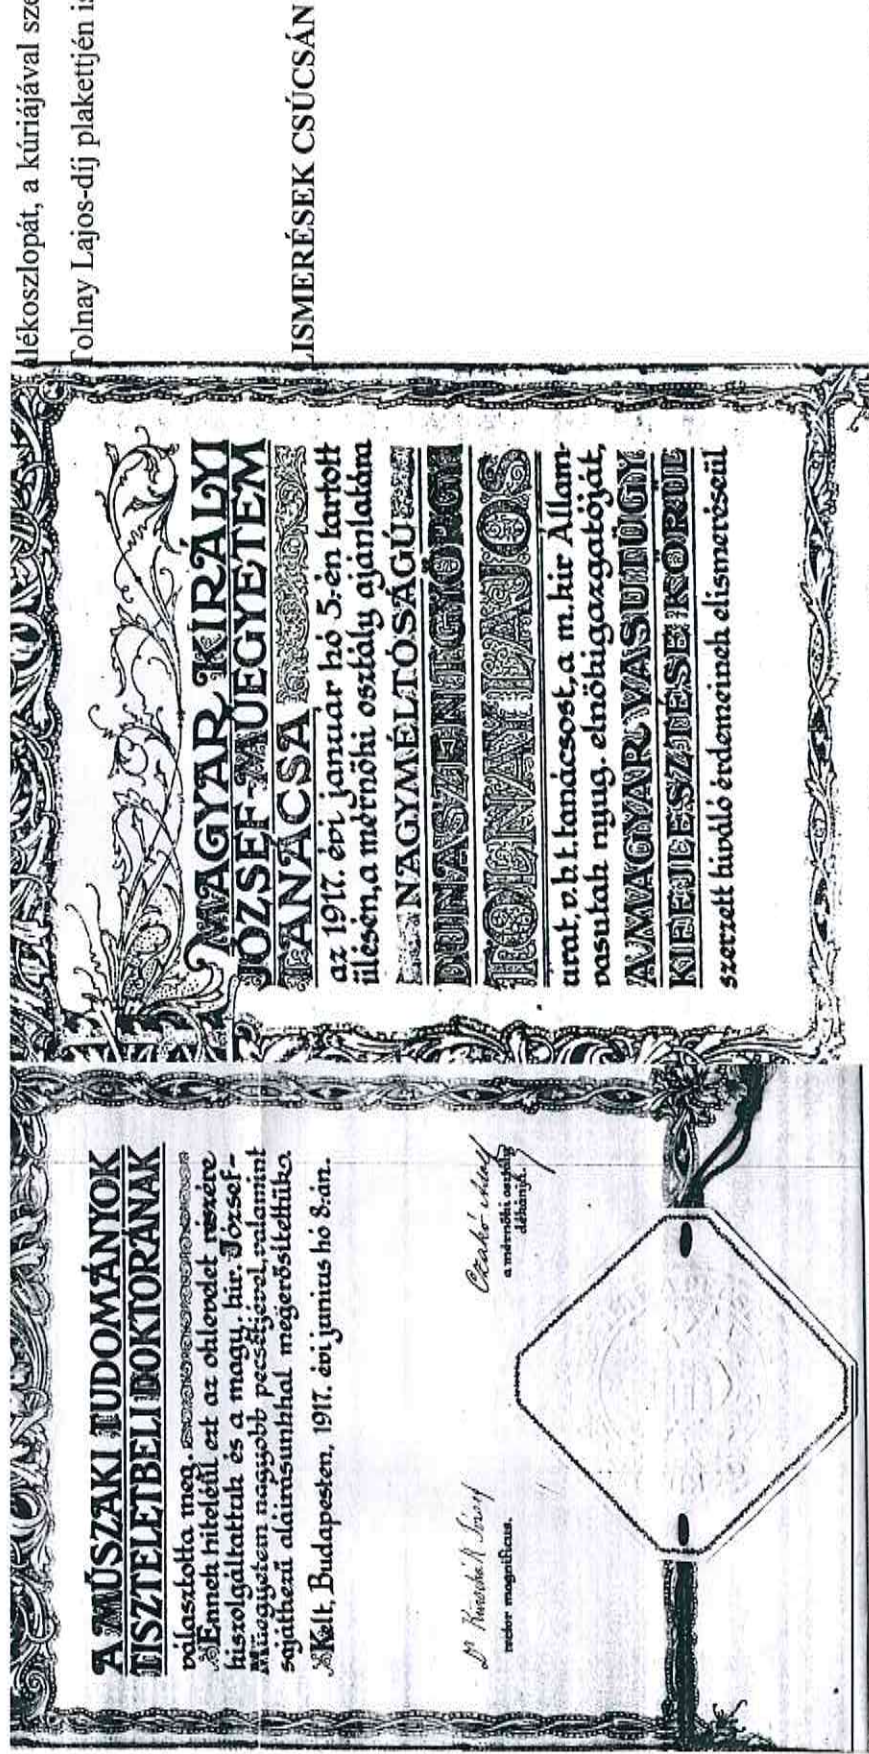 lékoszlopát, a kúriájával
Tolnay Lajos-díj plakettjén
ISMERÉSEK CSÚCSÁN
MAGYAR KIRÁLYI
JÓZSEF-MŰEGYETEM
TANÁCSA
az 1917. évi január hó 5.-én tartott
ülésén, a mérnöki osztály ajánlatára
NAGYMÉLTÓSÁGÚ
DUNASZENTGYÖRGYI
TOLNAY LAJOS
urat, v.b.t. tanácsost, a m. kir Állam-
vasutak nyug. elnökigazgatóját,
A MAGYAR VASUTÜGY
KIFEJLESZTÉSE KÖRÜL
szerzett kiváló érdemeinek elismeréseül
A MŰSZAKI TUDOMÁNYOK
TISZTELETBELI DOKTORÁNAK
választotta meg.
Ennek hiteléül ezt az oklevelet részére
kiszolgáltattuk és a magy. kir. József-
Műegyetem nagyobb pecsétjével, valamint
sajátkezű aláírásunkkal megerősítettük.
Kelt, Budapesten, 1917. évi junius hó 8.-án.
Dr Kürschák József
rector magnificus.
Czakó Adolf
a mérnöki osztály
dékánja.